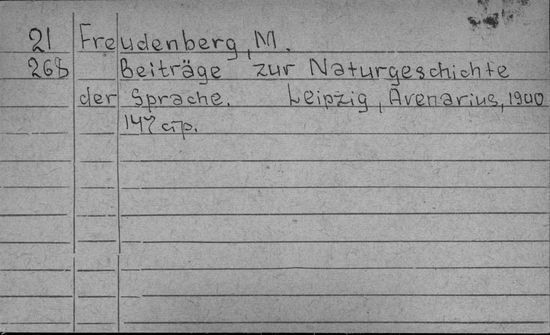 21 Freudenberg, M.
268 Beiträge zur Naturgeschichte
der Sprache. Leipzig, Avenarius, 1900
147 стр.